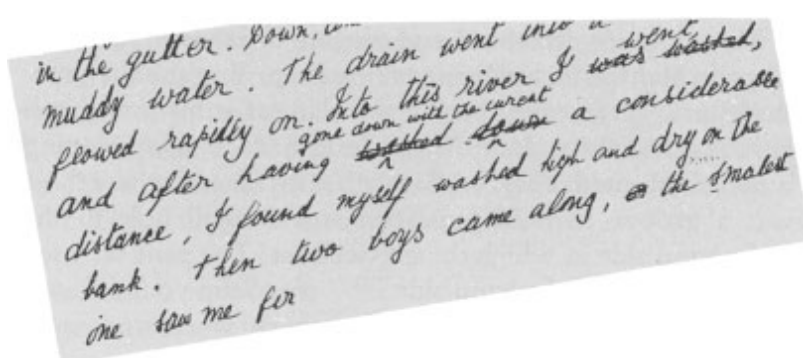 in the gutter. Down,
muddy water. The drain went into a
flowed rapidly on. Into this river I was washed, went
and after having washed down gone down with the curent a considerable
distance, I found myself washed high and dry on the
bank. Then two boys came along, the smalest
one saw me fir